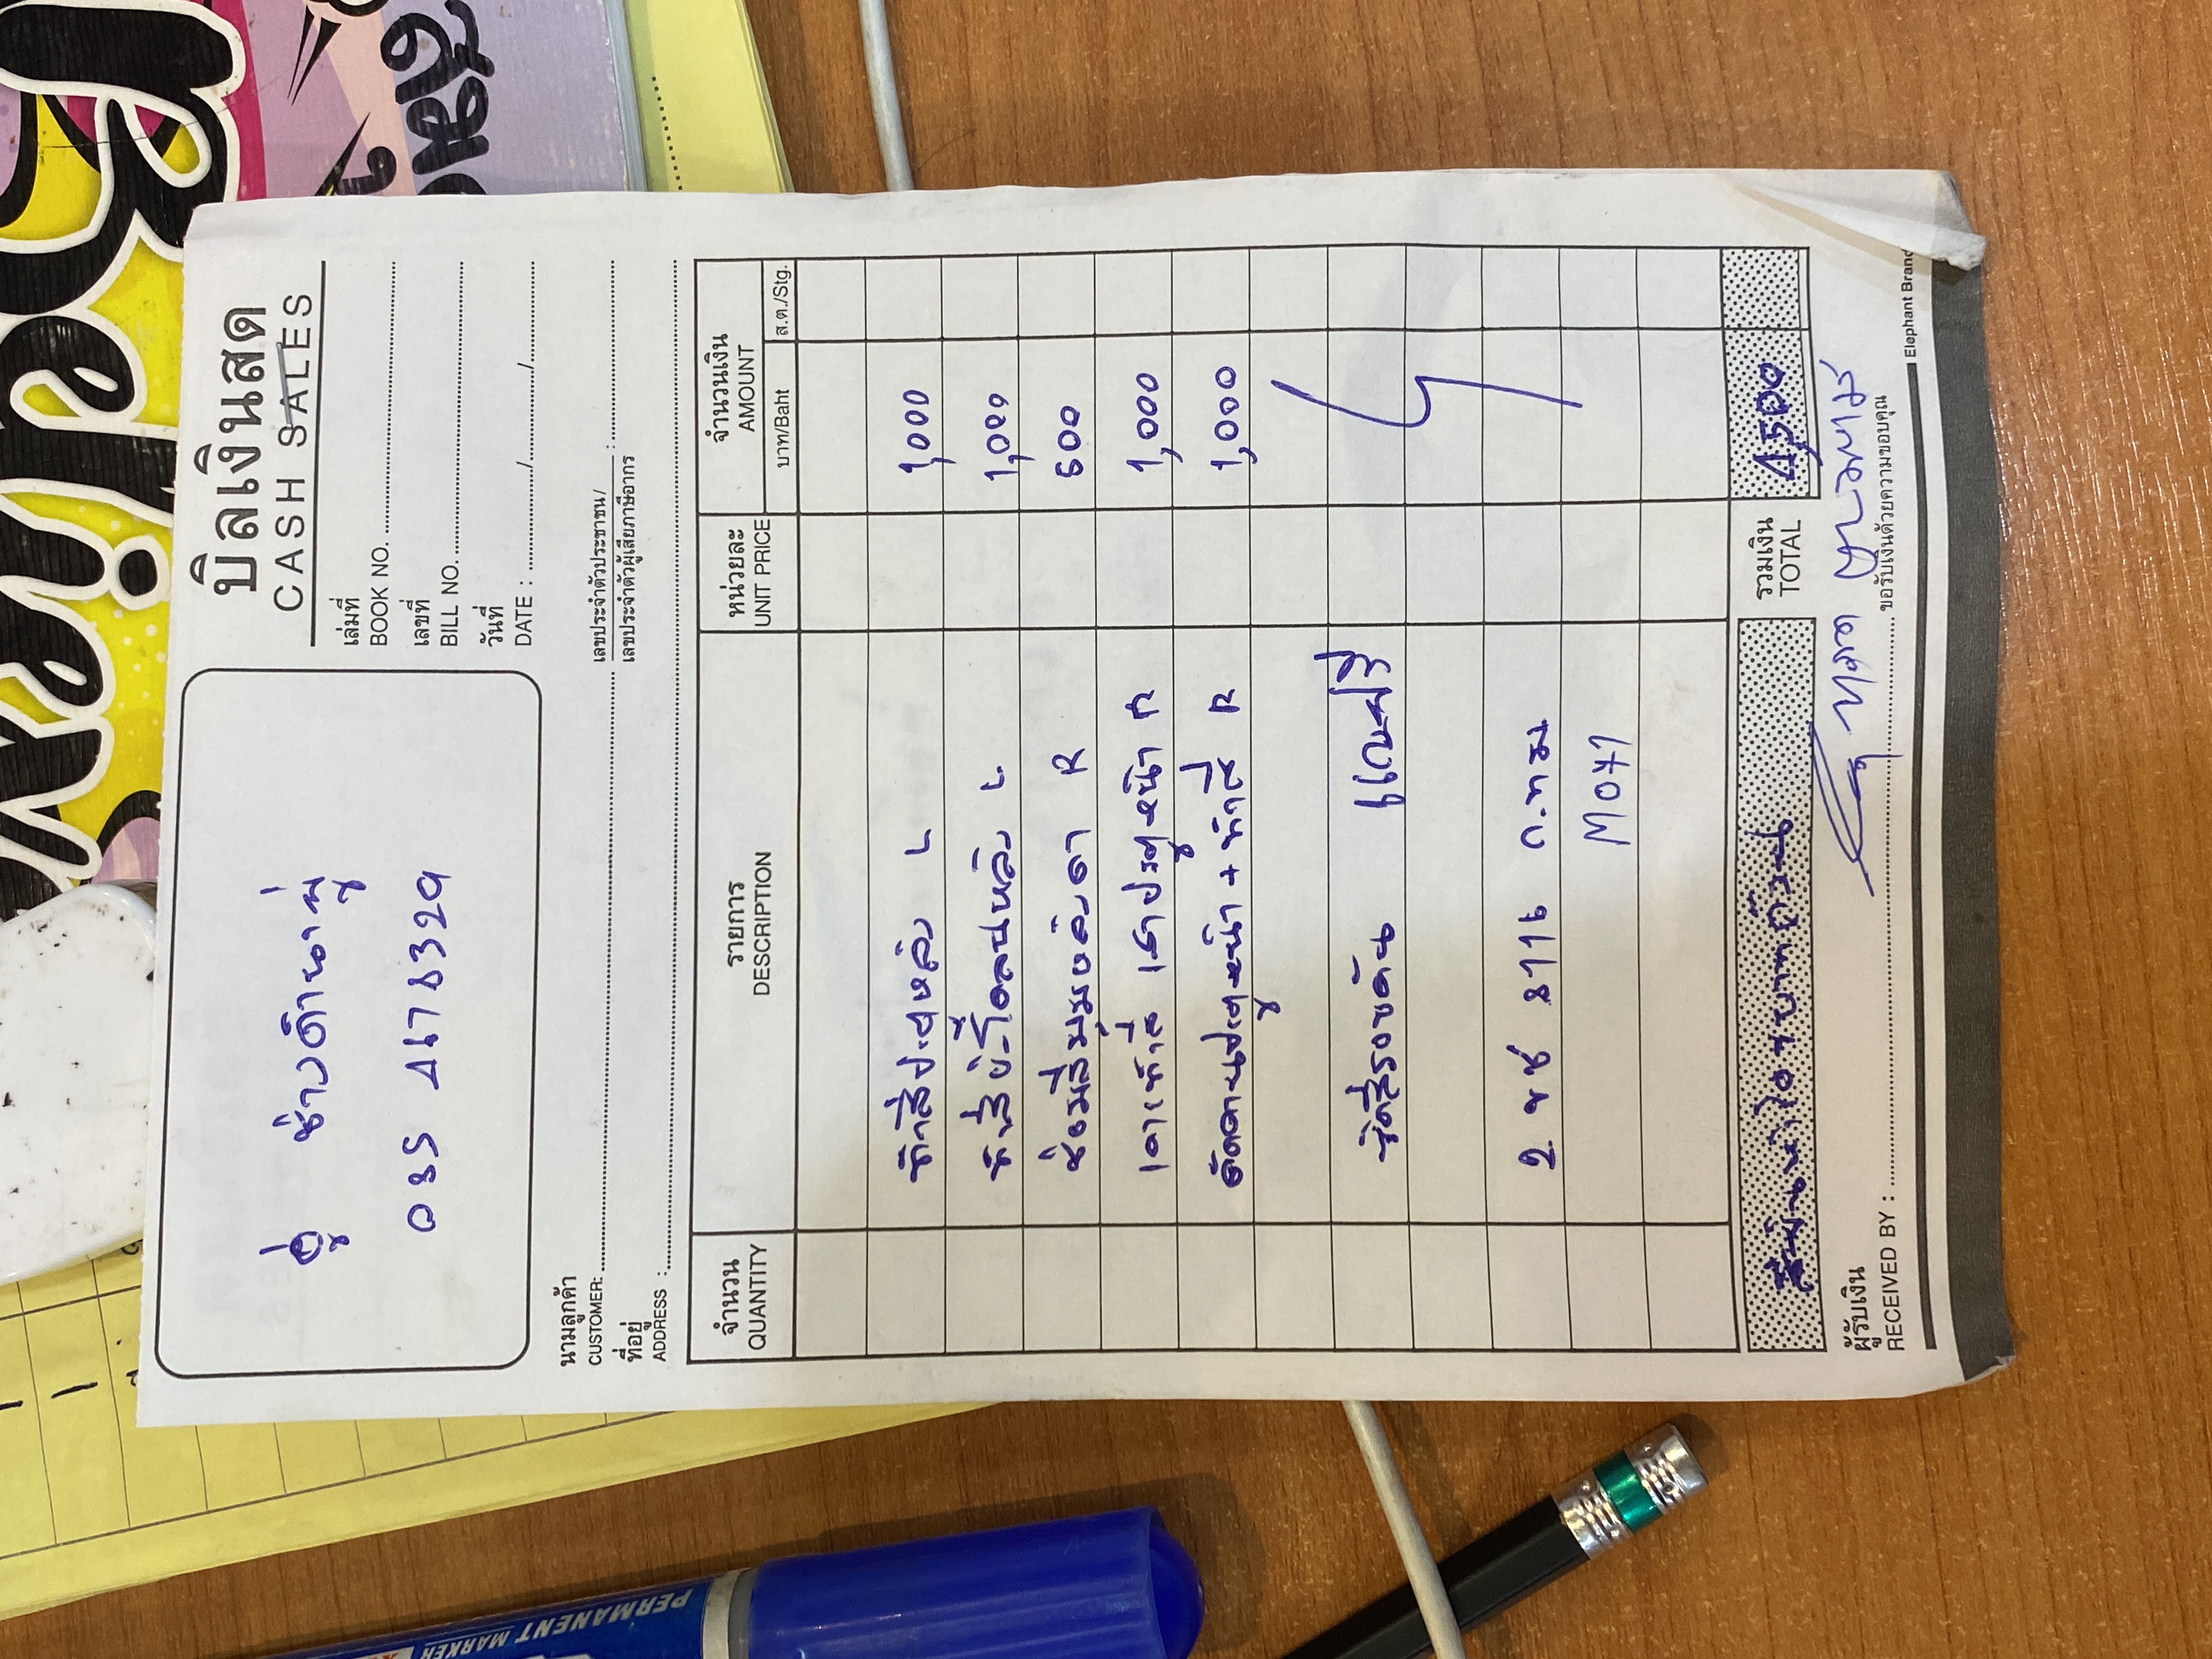 บิลเงินสด
CASH SALES
อู่ ช่างดำนาผู่
085 4178329
เล่มที่
BOOK NO.
เลขที่
BILL NO.
วันที่
DATE : / /
นามลูกค้า
CUSTOMER:
เลขประจำตัวประชาชน/
เลขประจำตัวผู้เสียภาษีอากร :
ที่อยู่
ADDRESS :
จำนวน รายการ หน่วยละ จำนวนเงิน
QUANTITY DESCRIPTION UNIT PRICE AMOUNT
บาท/Baht ส.ต./Stg.
ทำสีประตูหลัง L 1,000
ทำสีบังโคลนหลัง L 1,000
ซ่อมสีมุม R 500
เคาะทำสี เสาประตูหน้า R 1,000
ประตูหน้า + ทำสี R 1,000
ขัดสีรอบคัน แถมฟรี
2 ขช 8716 ก.ทม
M047
สี่พันห้าร้อยบาทถ้วน
รวมเงิน
TOTAL 4,500
ผู้รับเงิน
RECEIVED BY :
ขอรับเงินด้วยความขอบคุณ
Elephant Brand
PERMANENT MARKER